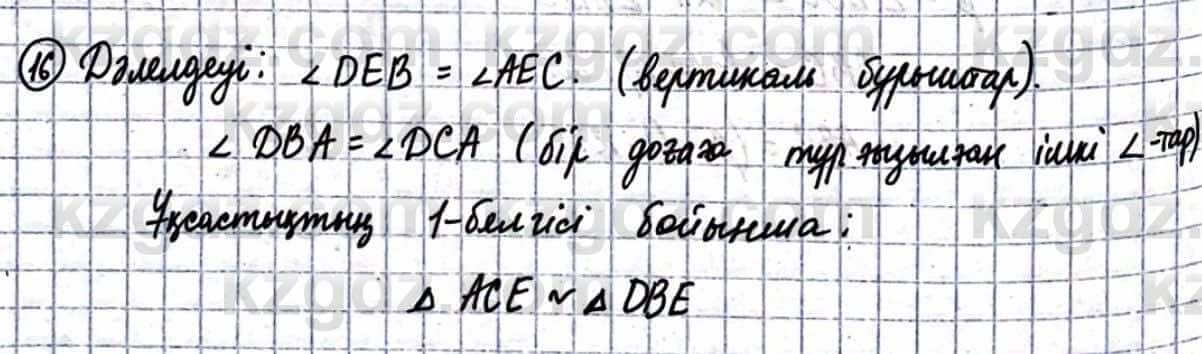 16 Дәлелдеуі: ∠DEB = ∠AEC. (вертикаль бұрыштар).
∠DBA = ∠DCA (бір доғаға тұрғызылған ішкі ∠-тар)
Ұқсастықтың 1-белгісі бойынша:
△ ACE ~ △ DBE